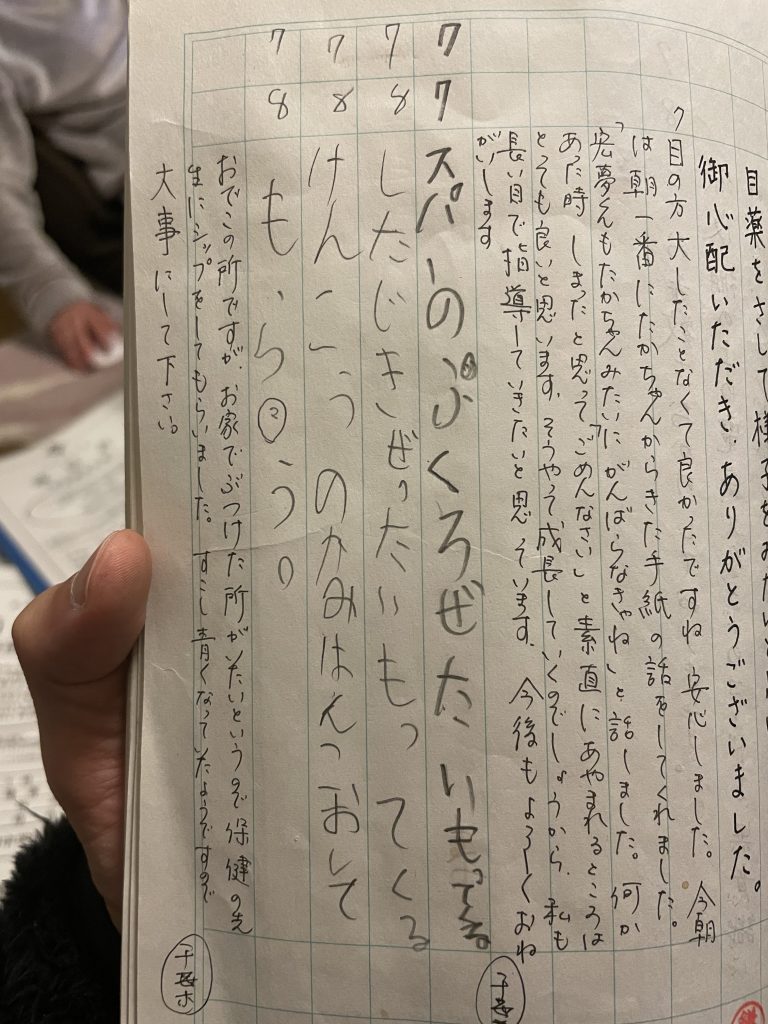 目薬をさして様子をみたいと思い
御心配いただき、ありがとうございました。
7目の方大したことなくて良かったですね 安心しました。今朝
は朝一番にたかちゃんからきた手紙の話をしてくれました。
「宏夢くんもたかちゃんみたいにがんばらなきゃね」と話しました。何か
あった時 しまったと思って「ごめんなさい」と素直にあやまれるところは
とっても良いと思います。そうやって成長していくのでしょうから、私も
長い目で指導していきたいと思っています。今後もよろしくおね
がいします
77スパーのふくろぜたいもってくる。
78したじきぜったいもってくる
78けんこうのかみはんこおして
78もらう。
おでこの所ですが、お家でぶつけた所がいたいというので保健の先
生にシップをしてもらいました。すこし青くなっていたようですので
大事にして下さい。